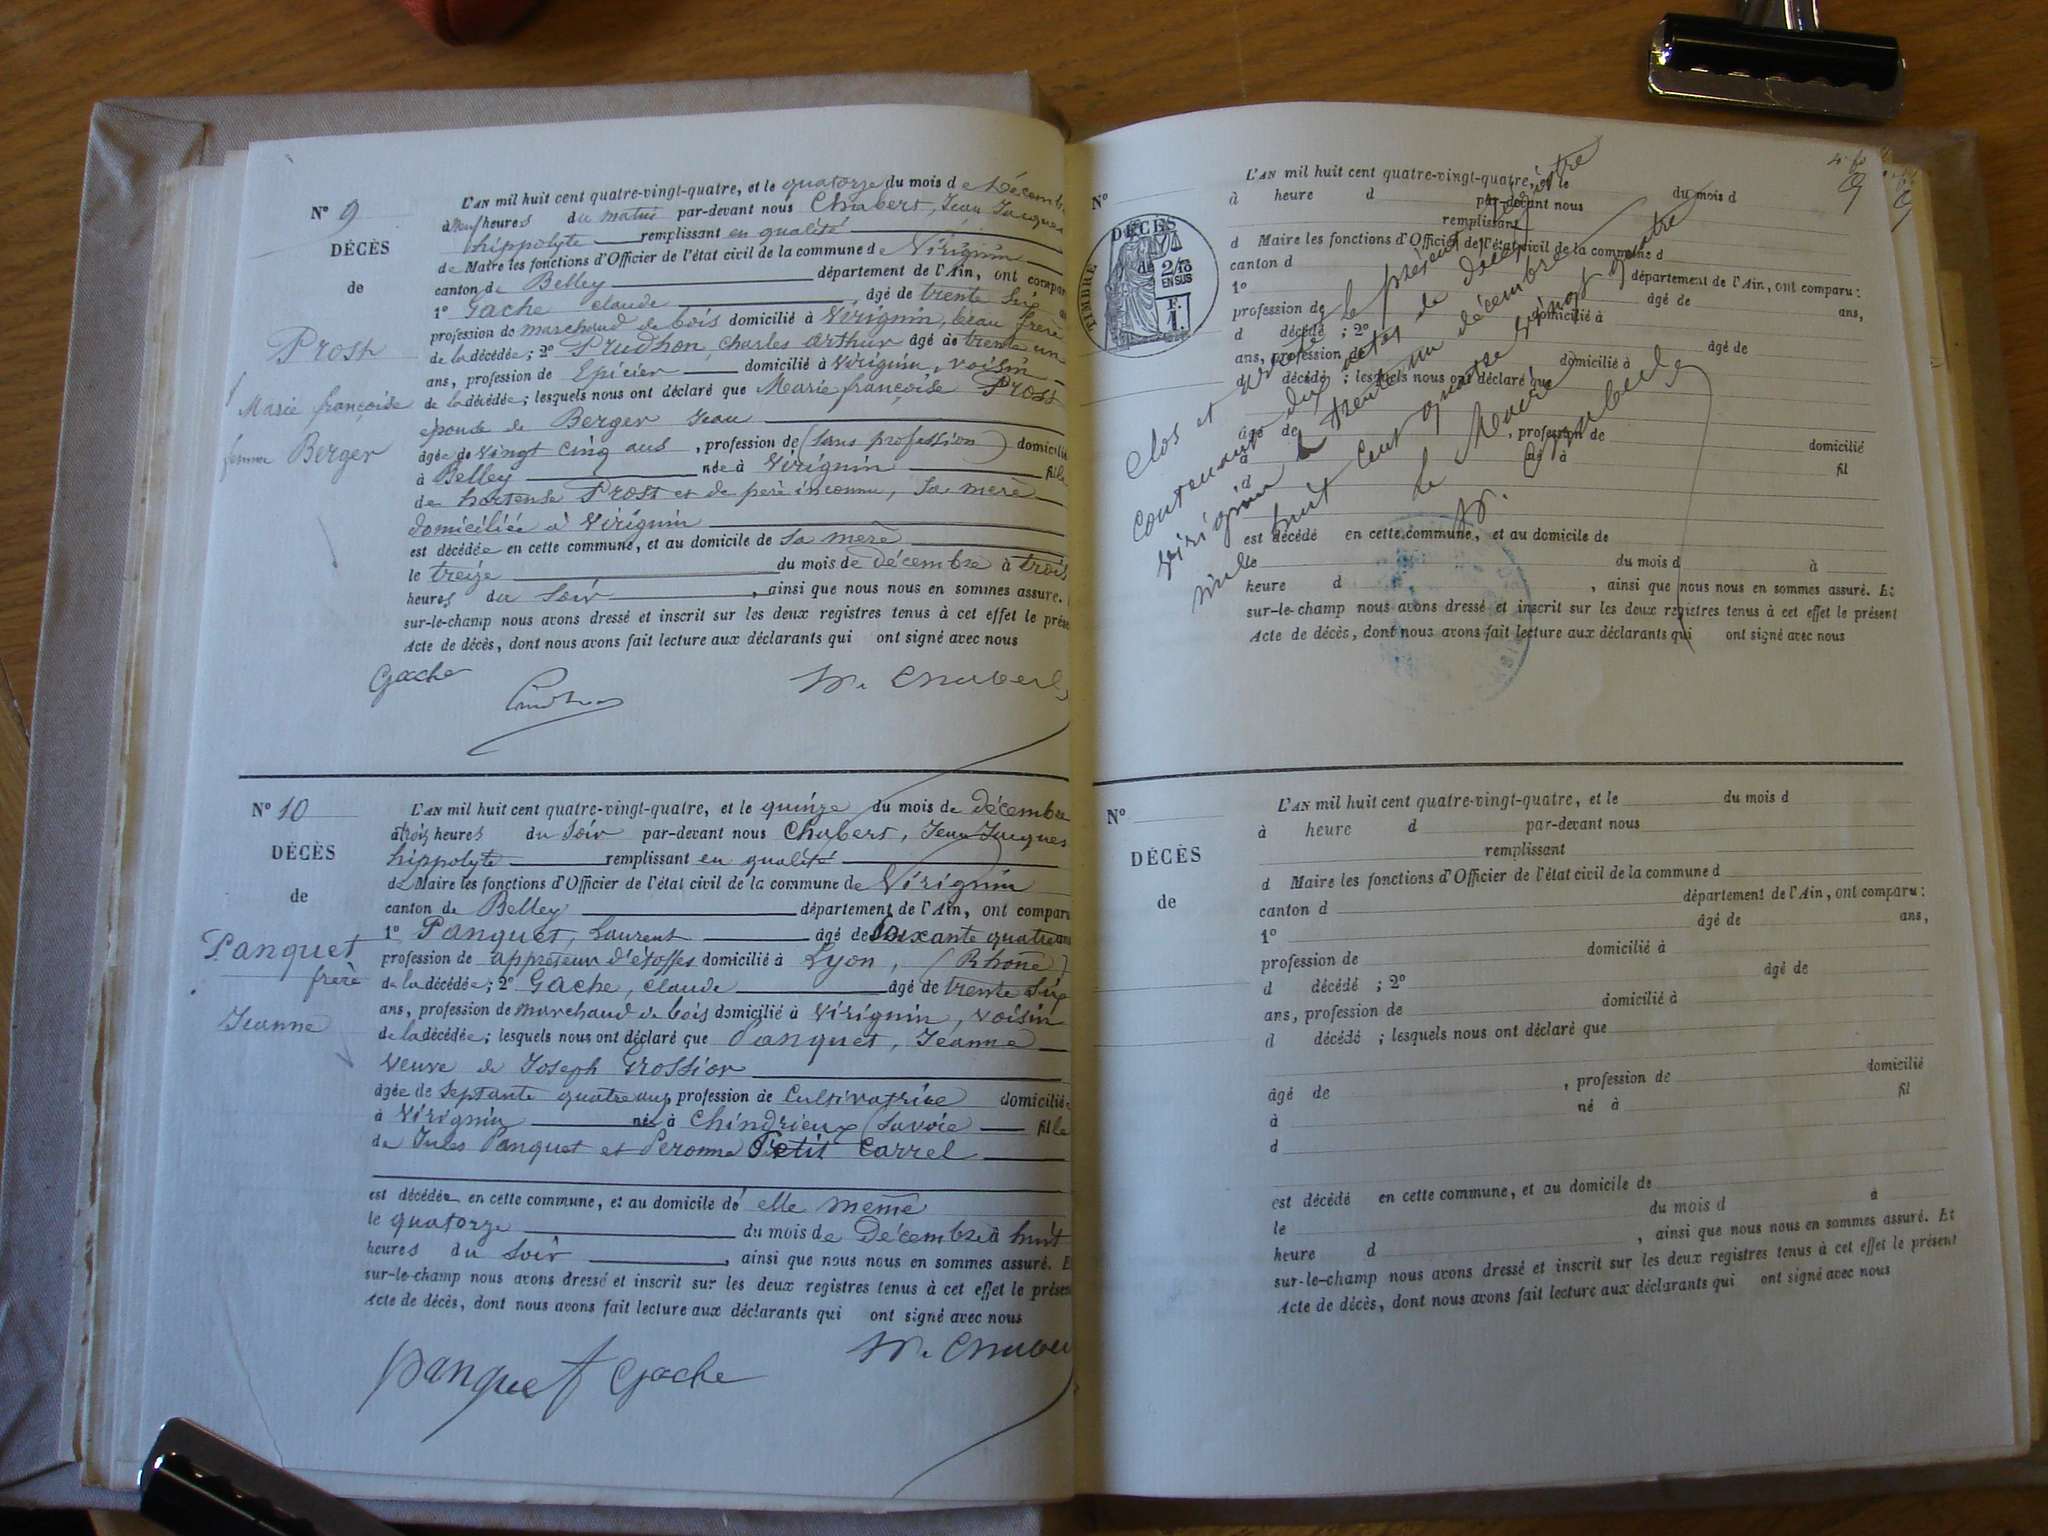 N° 9
DÉCÈS
de
Prost
Marie françoise
femme Berger
L'AN mil huit cent quatre-vingt-quatre, et le quatorze du mois de Décembre
à Neuf heures du matin par-devant nous Chabert, Jean Jacques
hippolyte remplissant en qualité
de Maire les fonctions d'Officier de l'état civil de la commune de Virignin
canton de Belley département de l'Ain, ont comparu
1° Gache claude âgé de trente six
profession de marchand de bois domicilié à Virignin, beau frère
de la décédée; 2° Prudhon, charles arthur âgé de trente un
ans, profession de Epicier domicilié à Virignin, voisin
de la décédée; lesquels nous ont déclaré que Marie françoise Prost
épouse de Berger Jean
âgée de vingt cinq ans, profession de (sans profession) domicilié
à Belley née à Virignin fille
de hortense Prost et de père inconnu, sa mère
domiciliée à Virignin
est décédée en cette commune, et au domicile de sa mère
le treize du mois de décembre à trois
heures du soir, ainsi que nous nous en sommes assuré.
sur-le-champ nous avons dressé et inscrit sur les deux registres tenus à cet effet le prése
Acte de décès, dont nous avons fait lecture aux déclarants qui ont signé avec nous
Gache
Prudhon
h. Chabert
N° 10
DÉCÈS
de
Panquet
frère
Jeanne
L'AN mil huit cent quatre-vingt-quatre, et le quinze du mois de décembre
à trois heures du soir par-devant nous Chabert, Jean Jacques
hippolyte remplissant en qualité
de Maire les fonctions d'Officier de l'état civil de la commune de Virignin
canton de Belley département de l'Ain, ont comparu
1° Panquet, Laurent âgé de soixante quatre ans
profession de appreteur d'étoffes domicilié à Lyon, (Rhône)
de la décédée; 2° Gache, claude âgé de trente six
ans, profession de marchand de bois domicilié à Virignin, voisin
de la décédée; lesquels nous ont déclaré que Panquet, Jeanne
veuve de Joseph Grossior
âgée de septante quatre ans profession de Cultivatrice domicilié
à Virignin née à Chindrieux (Savoie fille
de Jules Panquet et Peronne Petit Carrel
est décédée en cette commune, et au domicile de elle même
le quatorze du mois de Décembre à huit
heures du soir, ainsi que nous nous en sommes assuré. E
sur-le-champ nous avons dressé et inscrit sur les deux registres tenus à cet effet le présen
Acte de décès, dont nous avons fait lecture aux déclarants qui ont signé avec nous
panquet Gache
h. Chaber
N°
DÉCÈS
de
TIMBRE
2/10
EN SUS
F.
1.
L'AN mil huit cent quatre-vingt-quatre, et le du mois d
à heure d par-devant nous
remplissant
d Maire les fonctions d'Officier de l'état civil de la commune d
canton d département de l'Ain, ont comparu:
1° âgé de ans,
profession de domicilié à
d décédé; 2° âgé de
ans, profession de domicilié à
d décédé; lesquels nous ont déclaré que
âgé de, profession de domicilié
à né à fil
d
est décédé en cette commune, et au domicile de
le du mois d à
heure d, ainsi que nous nous en sommes assuré. Et
sur-le-champ nous avons dressé et inscrit sur les deux registres tenus à cet effet le présent
Acte de décès, dont nous avons fait lecture aux déclarants qui ont signé avec nous
Clos et arrêté le présent registre
contenant dix actes de décès
Virignin le trente un décembre
mil huit cent quatre vingt quatre
le Maire
h. Chabert
N°
DÉCÈS
de
L'AN mil huit cent quatre-vingt-quatre, et le du mois d
à heure d par-devant nous
remplissant
d Maire les fonctions d'Officier de l'état civil de la commune d
canton d département de l'Ain, ont comparu:
1° âgé de ans,
profession de domicilié à
d décédé; 2° âgé de
ans, profession de domicilié à
d décédé; lesquels nous ont déclaré que
âgé de, profession de domicilié
à né à fil
d
est décédé en cette commune, et au domicile de
le du mois d à
heure d, ainsi que nous nous en sommes assuré. Et
sur-le-champ nous avons dressé et inscrit sur les deux registres tenus à cet effet le présent
Acte de décès, dont nous avons fait lecture aux déclarants qui ont signé avec nous